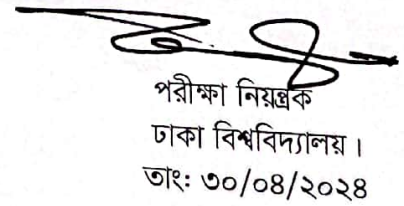 পরীক্ষা নিয়ন্ত্রক
ঢাকা বিশ্ববিদ্যালয়।
তাং: ৩০/০৪/২০২৪